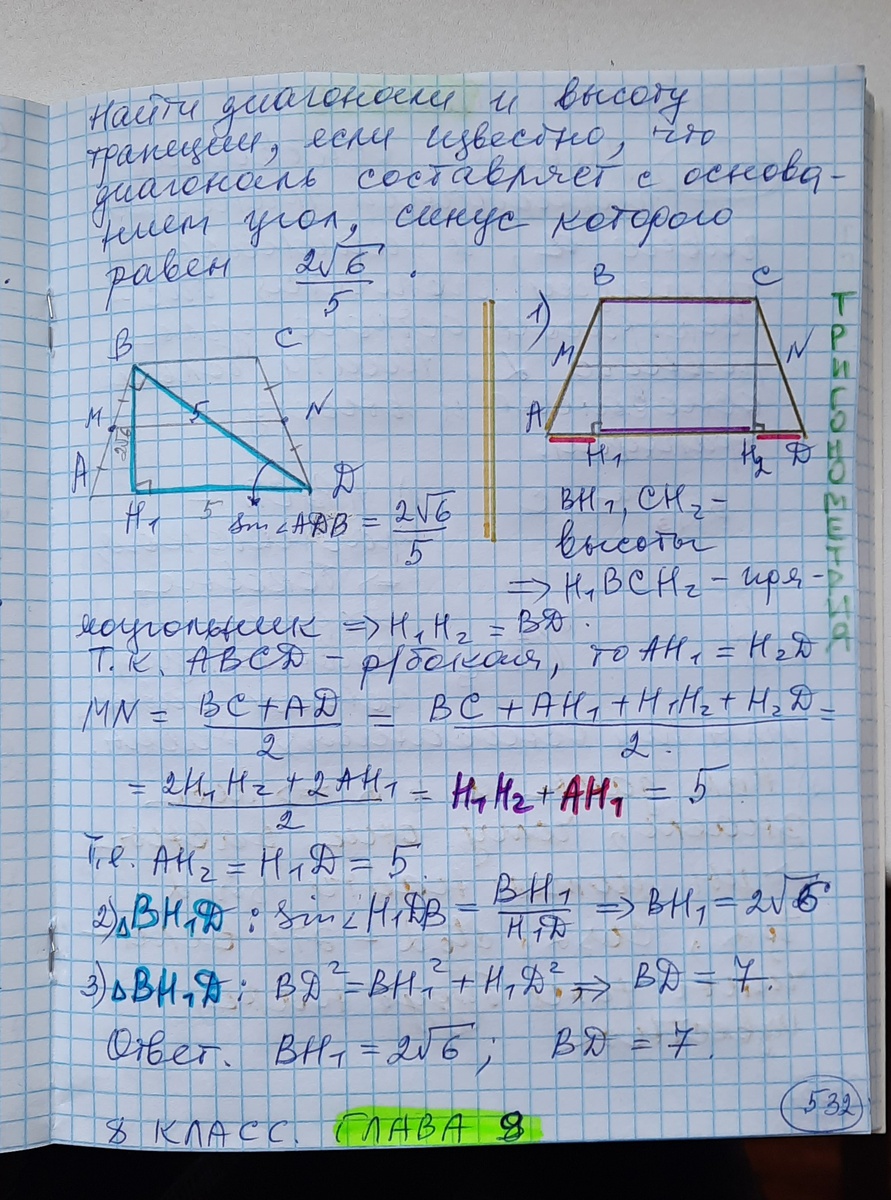 Найти диагонали и высоту
трапеции, если известно, что
диагональ составляет с основа-
нием угол, синус которого
равен 2√6/5.
B C
M 5 N
2√6
A H₁ 5 D
sin∠ADB = 2√6/5
1)
B C
M N
A H₁ H₂ D
ТРИГОНОМЕТРИЯ
BH₁, CH₂ –
высоты
⇒ H₁BCH₂ – пря-
моугольник ⇒ H₁H₂ = BD.
Т.к. ABCD – р/бокая, то AH₁ = H₂D
MN = (BC + AD)/2 = (BC + AH₁ + H₁H₂ + H₂D)/2 =
= (2H₁H₂ + 2AH₁)/2 = H₁H₂ + AH₁ = 5
Т.е. AH₂ = H₁D = 5.
2) △BH₁D: sin∠H₁DB = BH₁/H₁D ⇒ BH₁ = 2√6
3) △BH₁D: BD² = BH₁² + H₁D² ⇒ BD = 7.
Ответ. BH₁ = 2√6; BD = 7.
532
8 КЛАСС. ГЛАВА 8